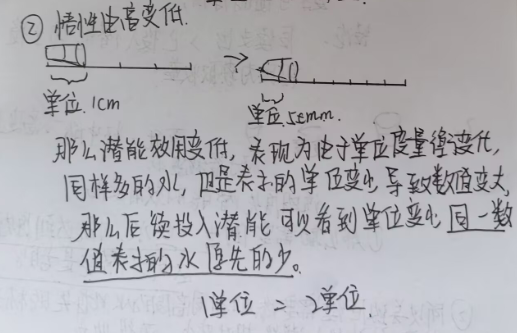 ② 悟性由高变低.
单位.1cm
单位.5mm.
那么潜能效用变低,表现为由于单位度量衡变化,
同样多的水,但是表示的单位变化导致数值变大,
那么后续投入潜能可以看到单位变化同一数
值表示的水原先的少。
1单位 = 2单位.